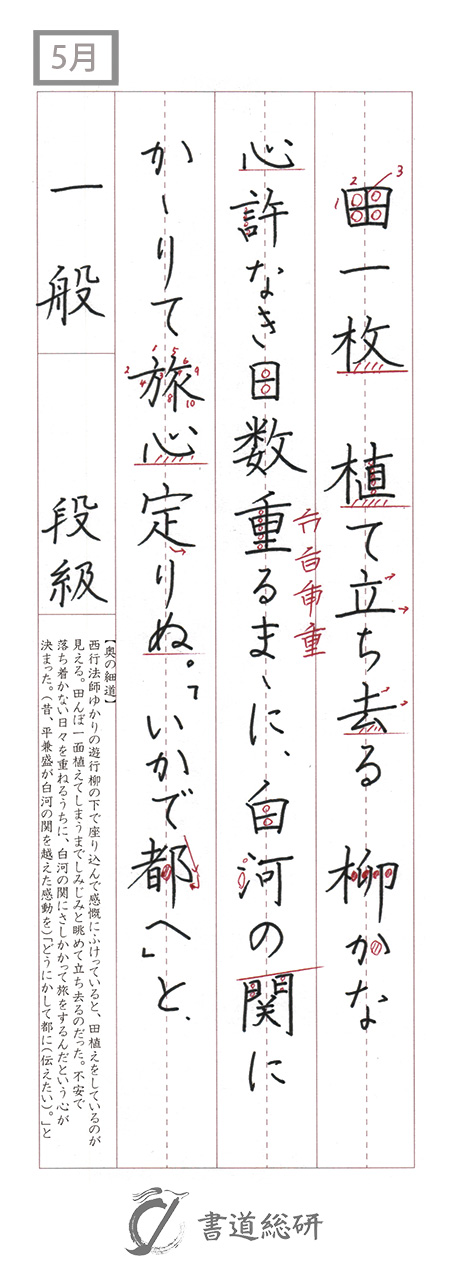 5月
田一枚 植て立ち去る 柳かな
心許なき日数重るまゝに、白河の関に
かゝりて旅心定りぬ。「いかで都へ」と、
一般 段級
【奥の細道】
西行法師ゆかりの遊行柳の下で座り込んで感慨にふけっていると、田植えをしているのが
見える。田んぼ一面植えてしまうまでしみじみと眺めて立ち去るのだった。不安で
落ち着かない日々を重ねるうちに、白河の関にさしかかって旅をするんだという心が
決まった。(昔、平兼盛が白河の関を越えた感動を)「どうにかして都に(伝えたい)。」と
書道総研